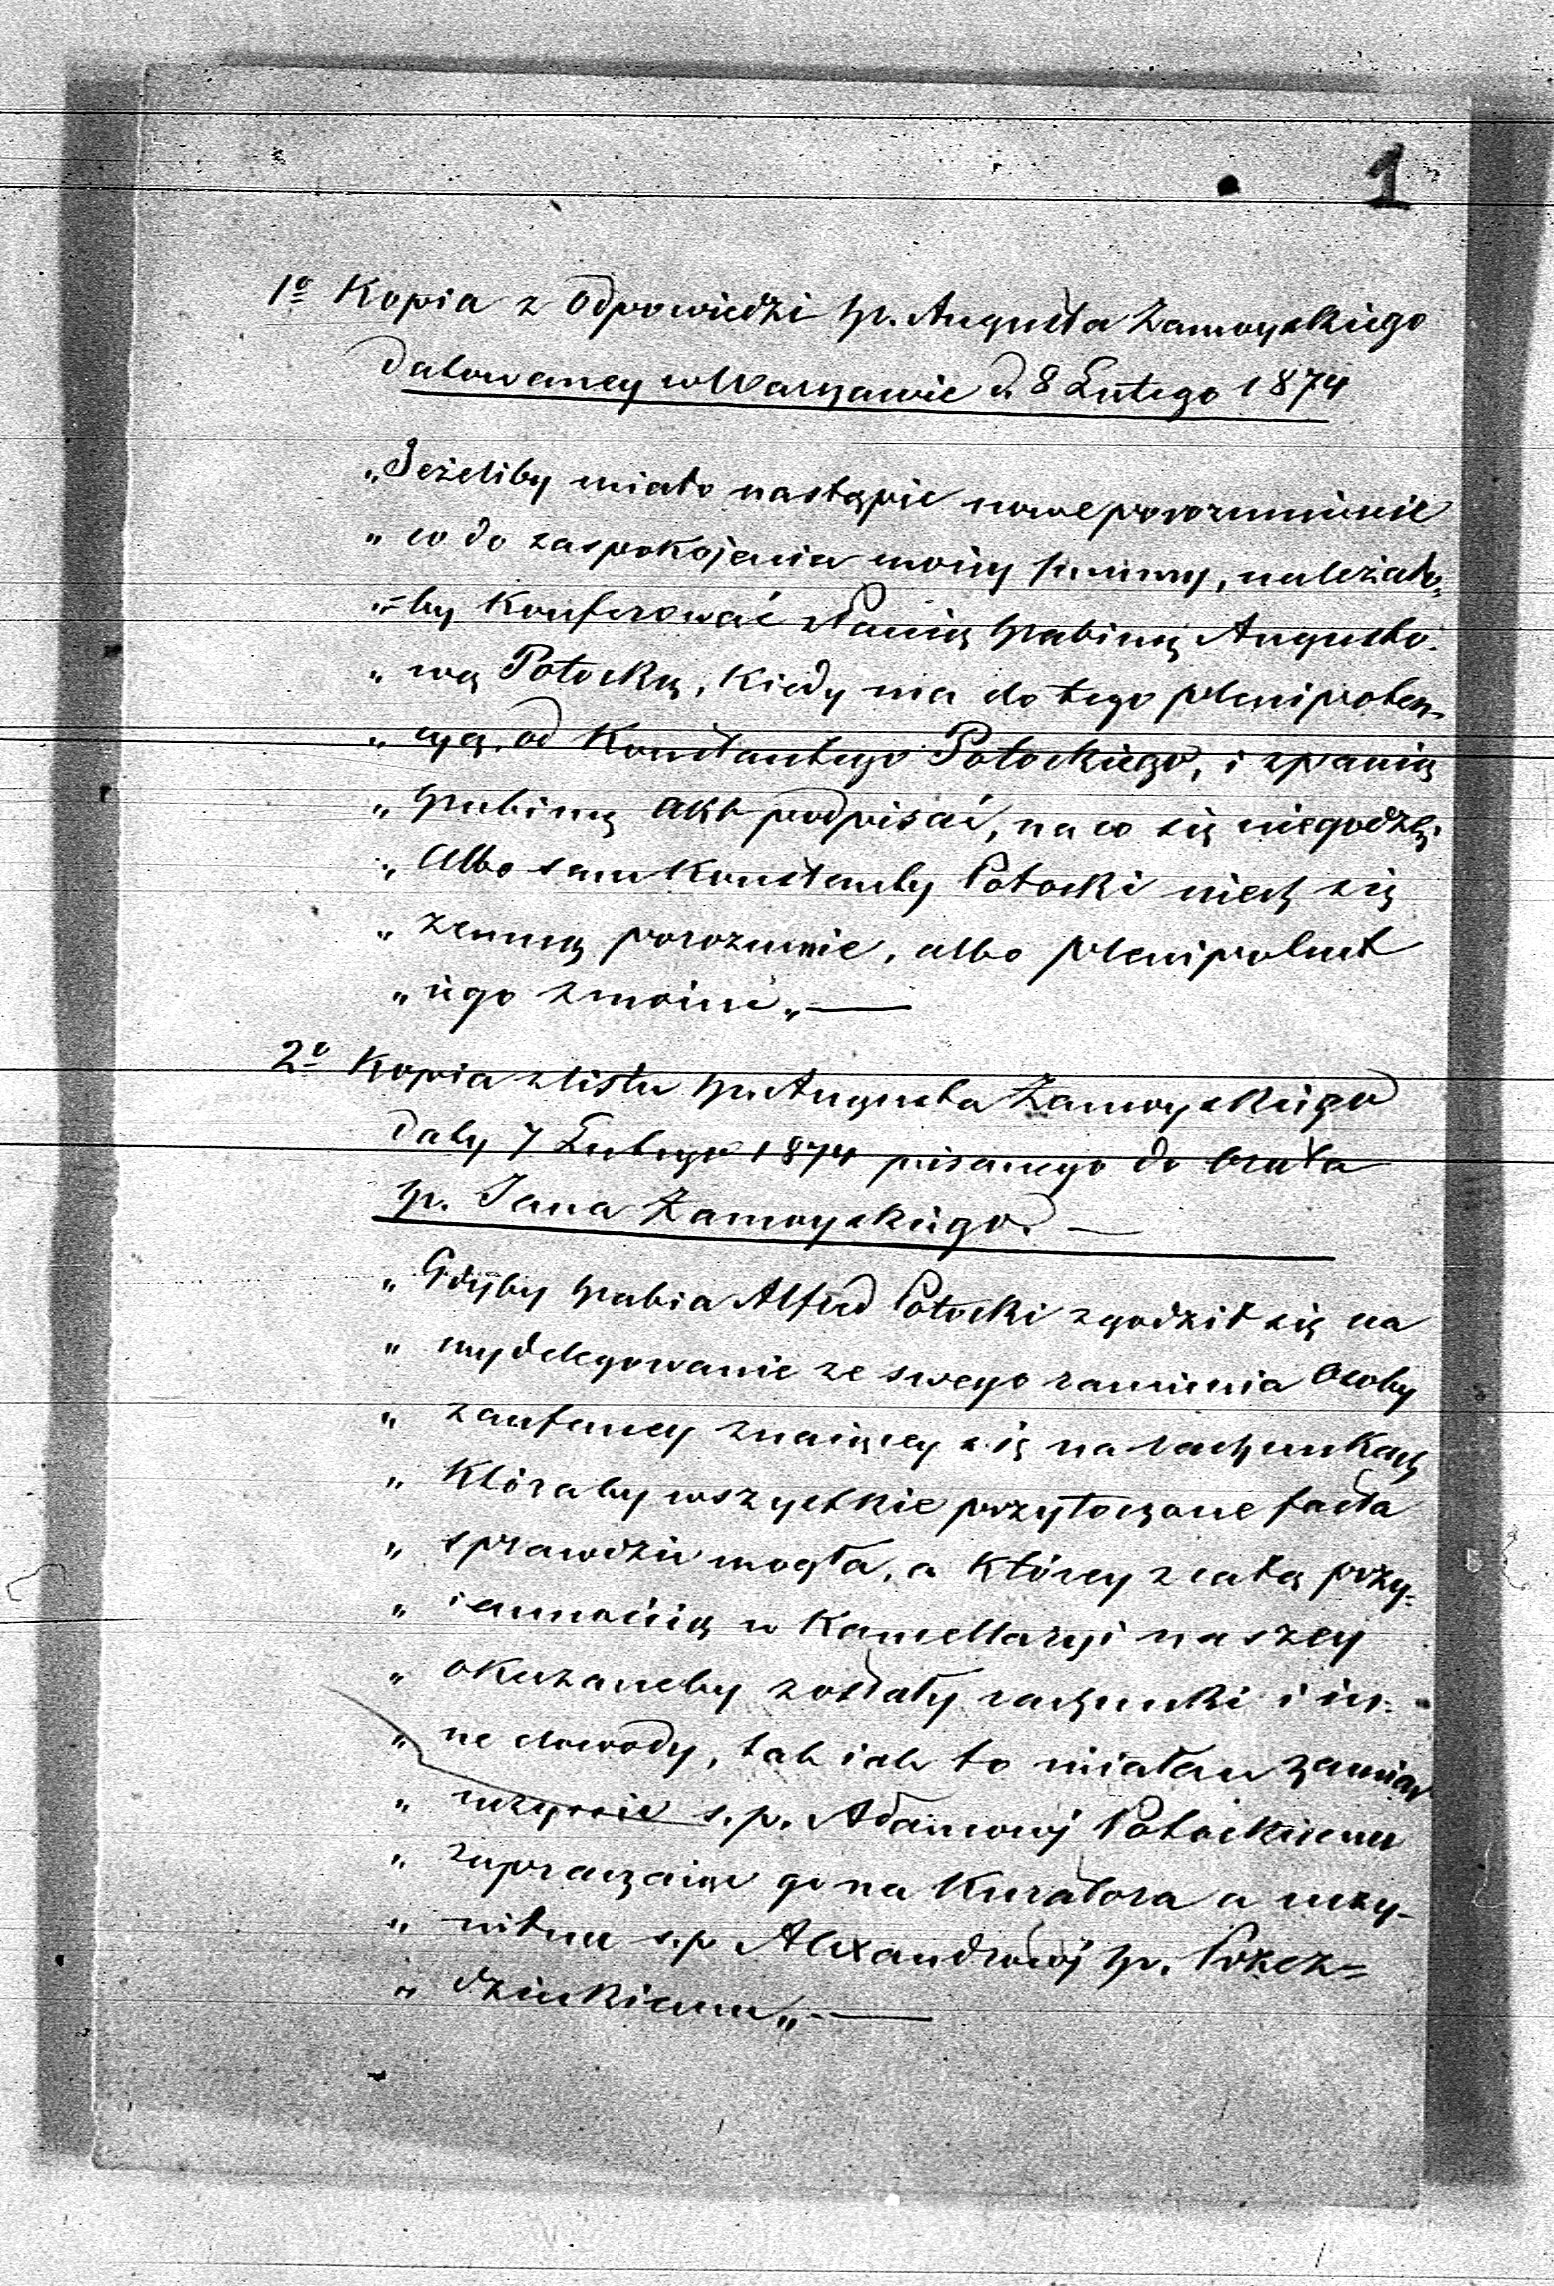 1
1º Kopia z odpowiedzi hr. Augusta Zamoyskiego
datowaney w Warszawie d. 8 Lutego 1874
„Jeżeliby miało nastąpić nowe porozumienie
„ co do zaspokojenia moiey summy, należało„
„-by konferować z Panią hrabiną Augusto-
„ wą Potocką, kiedy ma do tego plenipoten-
„ cyą od Konstantego Potockiego, i z panią
„ hrabiną akt podpisać, na co się niegodzę,
„ albo sam Konstanty Potocki niech się
„ zemną porozumie, albo plenipotent
„ iego z moim„ —
2º Kopia z listu hr. Augusta Zamoyskiego
daty 7 Lutego 1874 pisanego do brata
hr. Jana Zamoyskiego. —
„ Gdyby hrabia Alfred Potocki zgodził się na
„ wydelegowanie ze swego ramienia osoby
„ zaufaney znaiącey się na rachunkach
„ któraby wszystkie przytoczone facta
„ sprawdzić mogła, a którey z całą przy-
„ iemnością w Kancellaryi naszey
„ okazaneby zostały rachunki i in-
„ ne dowody, tak iak to miałem zamiar
„ uczynić s.p. Adamowi Potockiemu
„ zapraszaiąc go na Kuratora a uczy-
„ niłem s.p. Alexandrowi hr. Przez=
„ dzieckiemu„ —